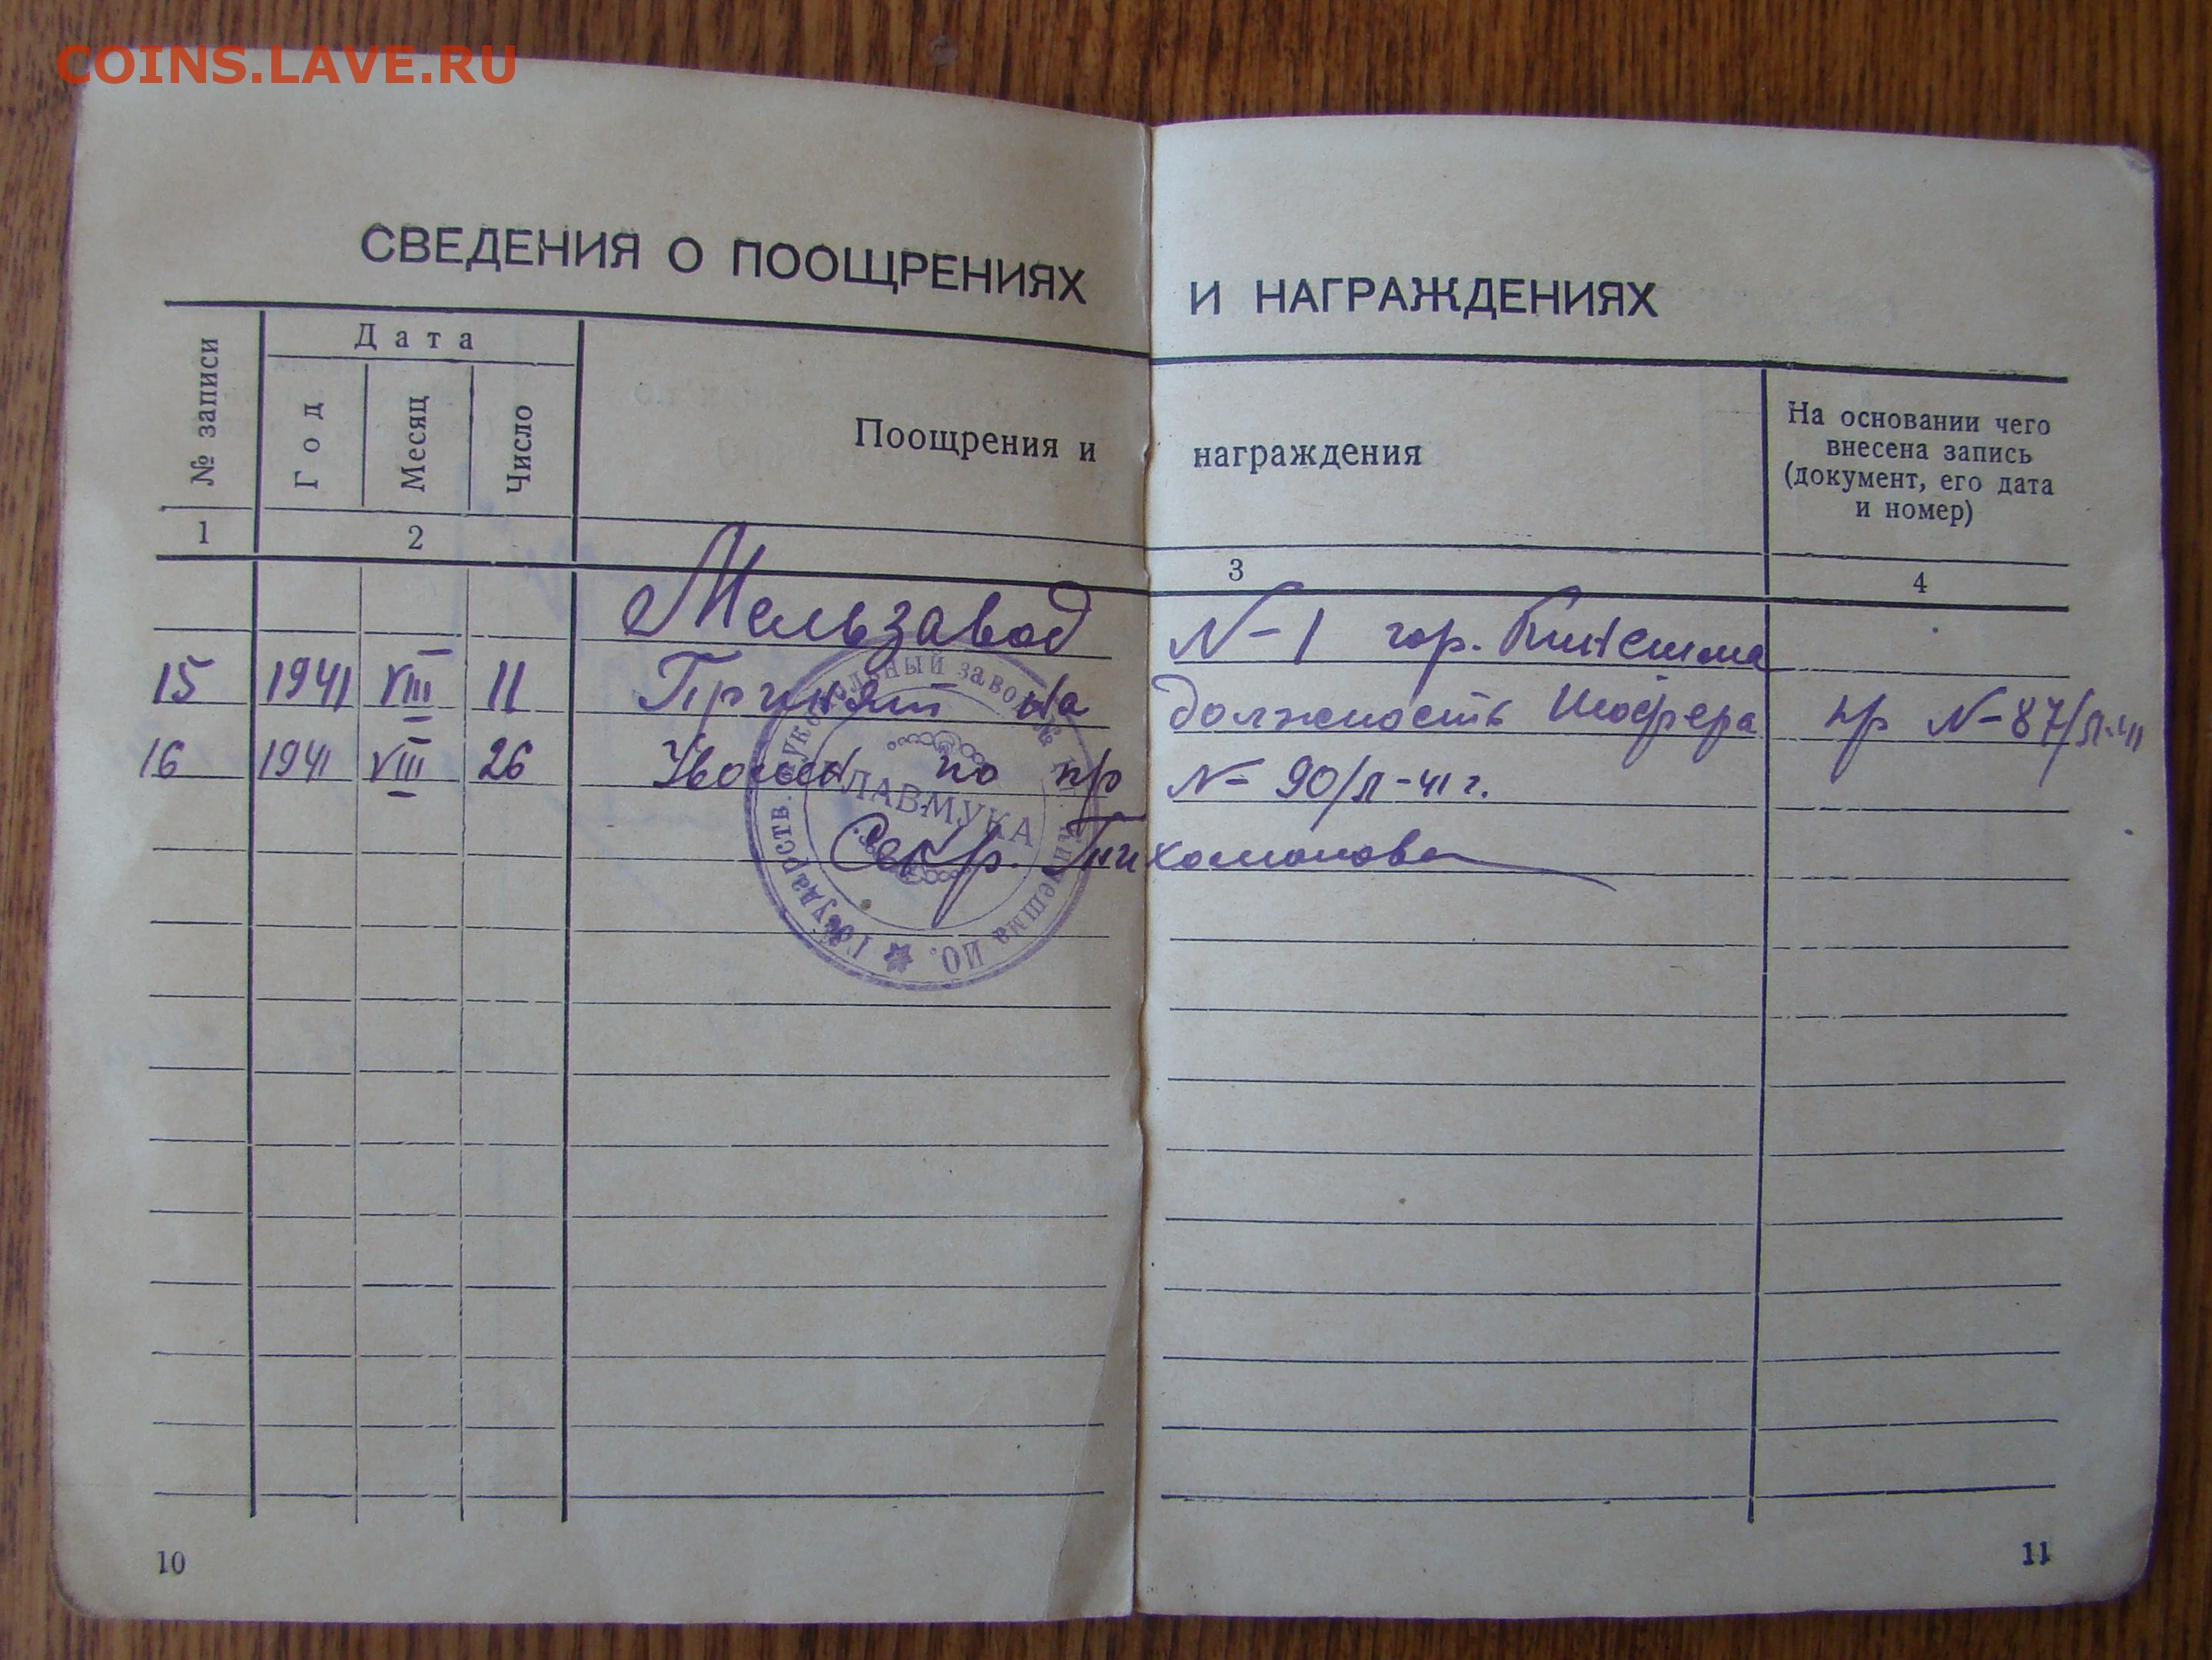 COINS.LAVE.RU
СВЕДЕНИЯ О ПООЩРЕНИЯХ И НАГРАЖДЕНИЯХ
№ записи
Дата
Год
Месяц
Число
Поощрения и награждения
На основании чего
внесена запись
(документ, его дата
и номер)
1 2 3 4
Мельзавод №1 гор. Кинешма
15 1941 VIII 11 Принят на должность шофера пр №87/л-41
16 1941 VIII 26 Уволен по пр № 90/л-41 г.
Секр. Тихомирова
Государств. мукомольный завод №
Кинешма ИО.
ГЛАВМУКА
10
11